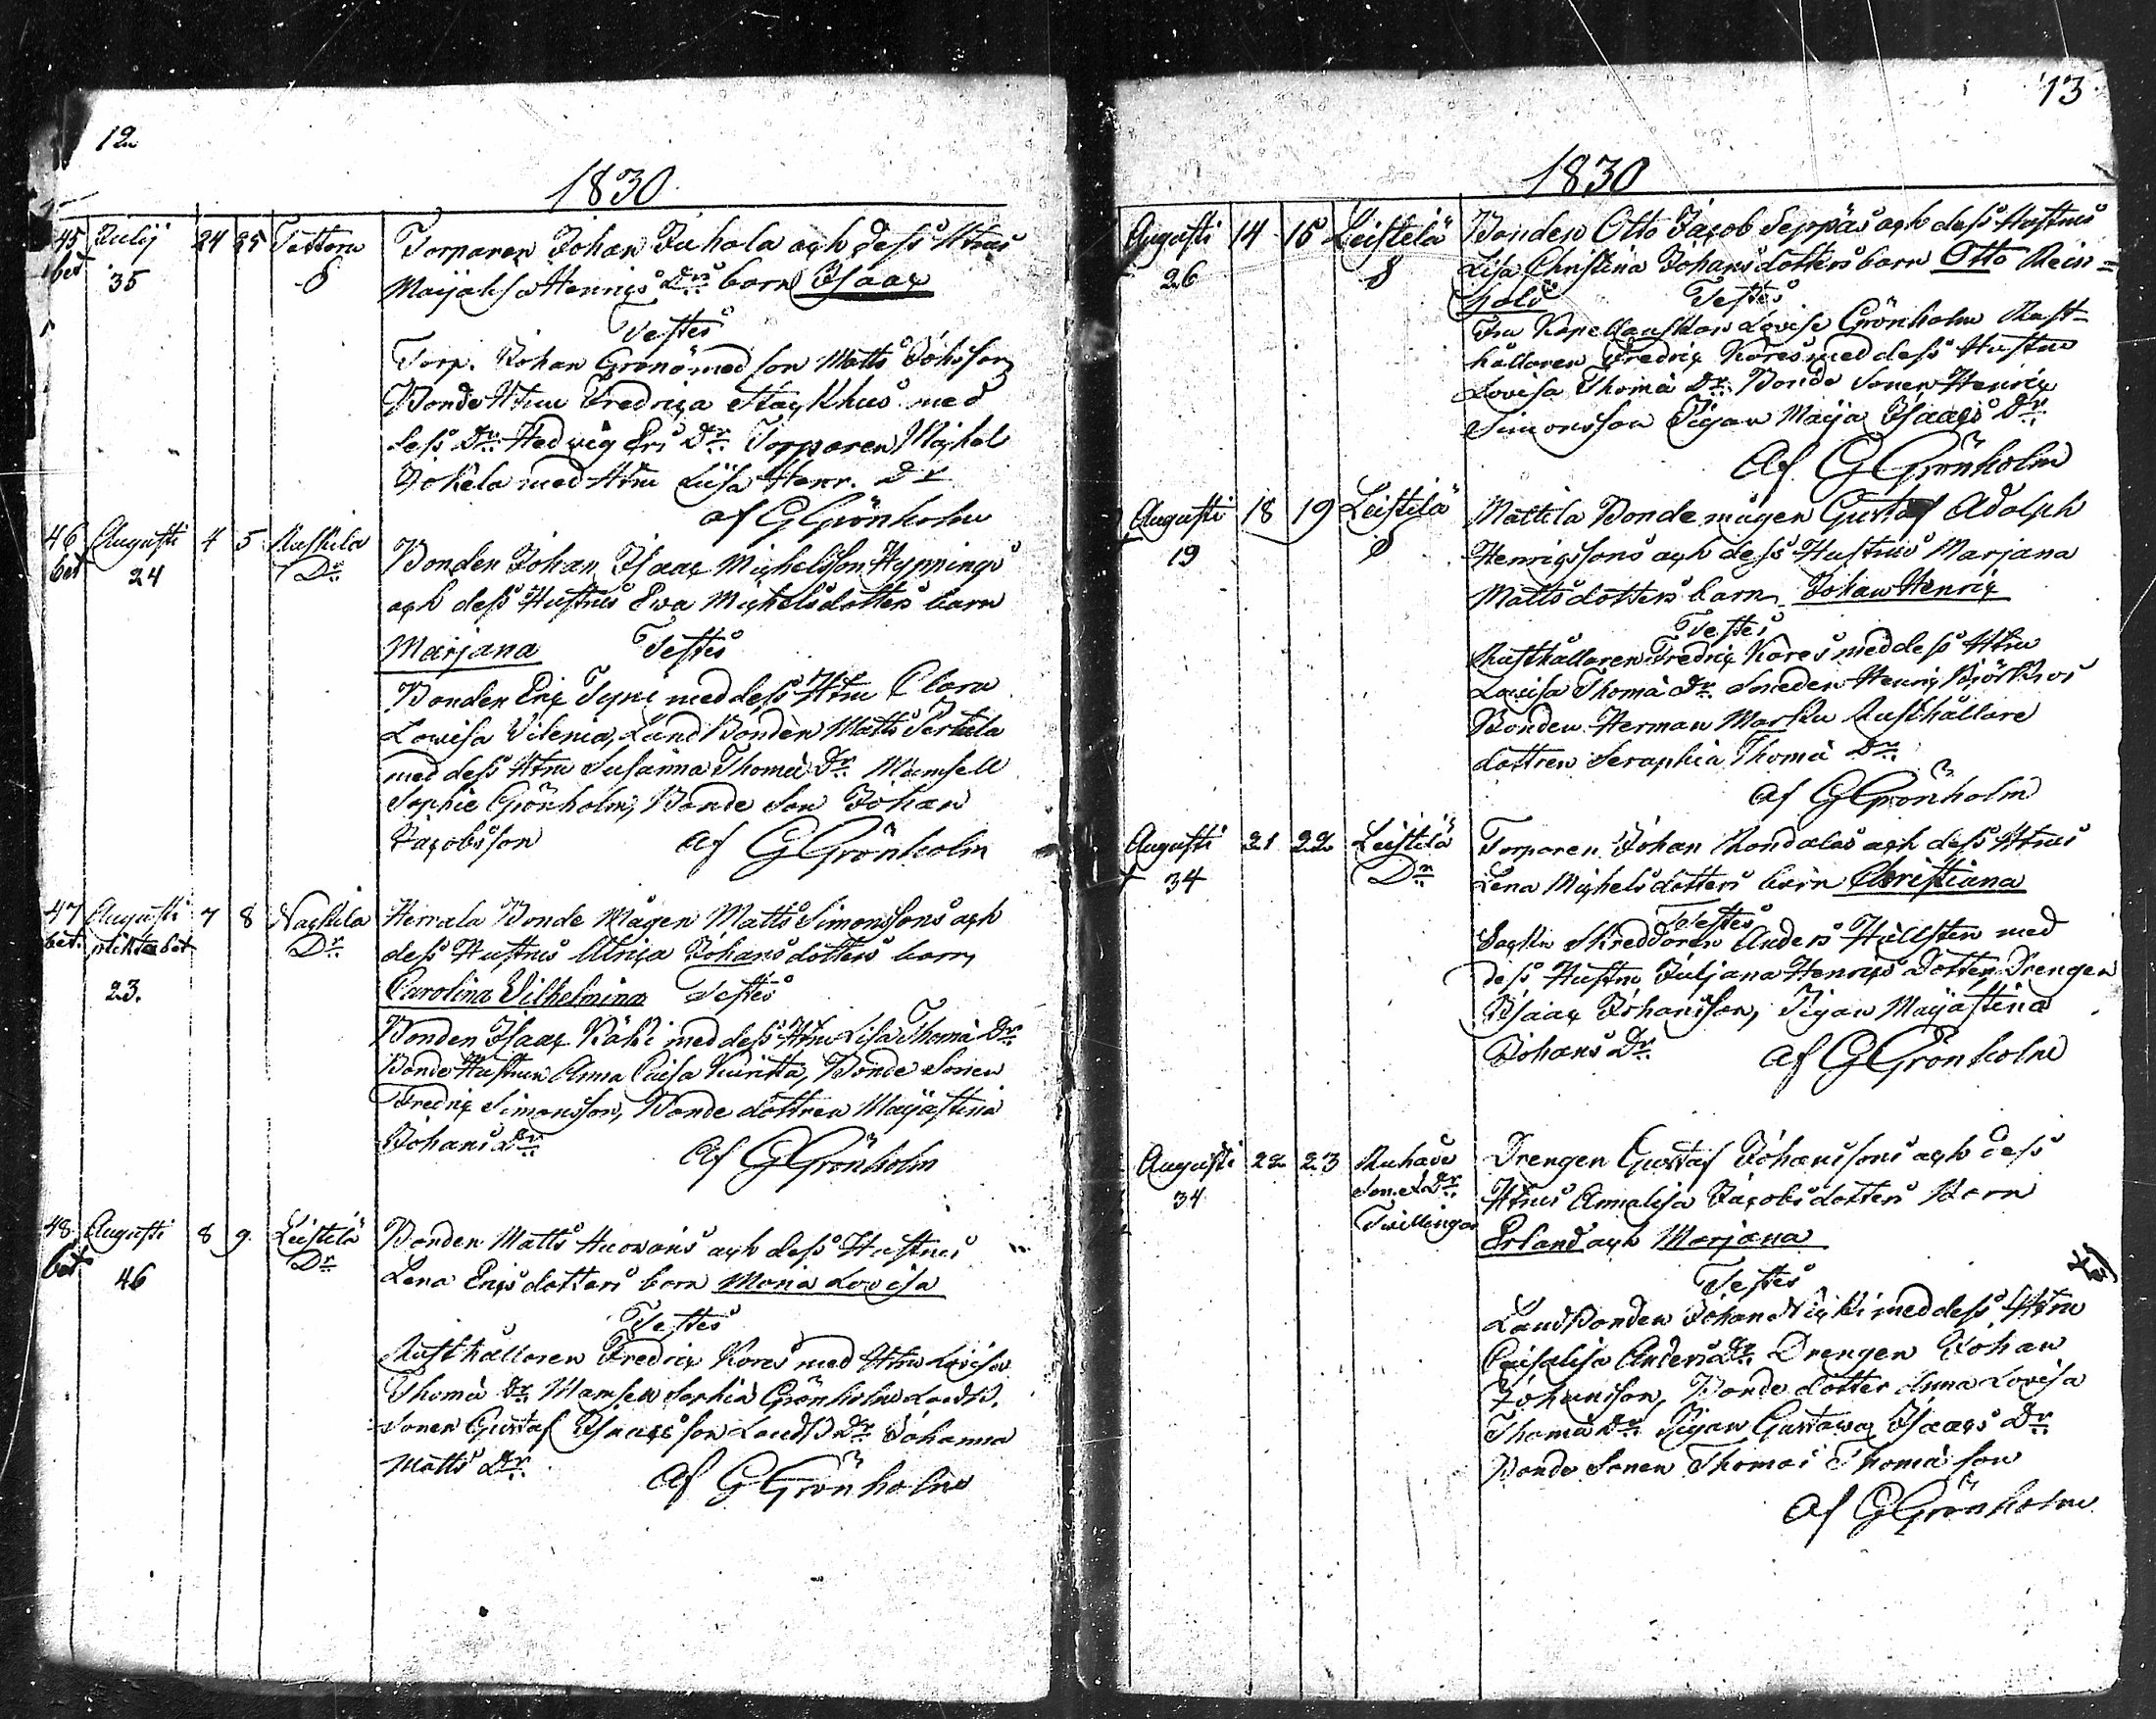 12
1830
45 Julij 24 25 Tattara Torparen Johan Juhola och dess Htrus
bet 35 S Maijalisa Henrics Dr. barn Isaac
Testes
Torp. Johan Grönö med son Matts Johsson
Bonde Htru Fredrica Stackhus med
dess Dr. Hedvig Ers Dr. Torparen Michel
Jokela med Htru Liisa Henr. Dr
af G Grönholm
46 Augusti 4 5 Raskila Bonden Johan Isaac Michelsson Hyppings
bet 24 Dr. och dess Hustrus Eva Michelsdotters barn
Marjana Testes
Bonden Eric med dess Htru Clara
Lovisa Landbonden Matts Pertula
med dess Htru Susanna Thomæ Dr. Mamsell
Sophie Grönholm, Bonde Son Johan
Jacobsson af G Grönholm
47 Augusti 7 8 Nackila Herrala Bonde Mågen Matts Simonssons och
bet. plikta bet Dr. dess Hustrus Ulrica Johansdotters barn
23. Carolina Vilhelmina Testes
Bonden Isaac Käki med dess Htru Lisa Thomæ Dr.
Bonde Hustrun Anna Caisa Bonde Sonen
Fredric Simonsson, Bonde dottren Maijastina
Johans Dr. Af G Grönholm
48 Augusti 8 9 Leistilä Bonden Matts Huovans och dess Hustrus
bet 46 Dr. Lena Ericsdotters barn Maria Lovisa
Testes
Rusthållaren Fredric Kares med Htru Lovisa
Thomæ Dr. Mamsell Sophia Grönholm Landb.
Sonen Gustaf Isaacsson Landb Dr. Johanna
Matts Dr. Af G Grönholm
13
1830
Augusti 14 15 Leistilä Bonden Otto Jacob Seppäs och dess Hustrus
26 S Lisa Christina Johansdotters barn Otto Rein=
hold Testes
Fru Kapellanskan Lovise Grönholm Rust-
hållaren Fredric Kares med dess Hustru
Lovisa Thomæ Dr. Bonde Sonen Henric
Simonsson Pigan Maija Isaacs Dr.
Af G Grönholm
Augusti 18 19 Leistilä Mattila Bonde mågen Gustaf Adolph
19 S Henricssons och dess Hustrus Marjana
Mattsdotters barn Johan Henric
Testes
Rusthållaren Fredric Kares med dess Htru
Lovisa Thomæ Dr. Smeden Henric Björkroos
Bonden Herman Marku Rusthållare
dottren Seraphia Thomæ Dr.
Af G Grönholm
Augusti 21 22 Leistilä Torparen Johan Rondalas och dess Htrus
34 Dr Lena Michelsdotters barn Christiana
Testes
Sockn Skreddaren Anders Hällsten med
dess Hustru Juljana Henrics Dotter, Drengen
Isaac Johansson, Pigan Maijastina
Johans Dr. Af G Grönholm
Augusti 22 23 Ruhade Drengen Gustaf Johanssons och dess
34 Son et Dr. Htrus Annalisa Jacobsdotters Barn
Twillingar Erland och Marjana
Testes
Landbonden Johan med dess Htru
Caisalisa Anders Dr. Drengen Johan
Johansson, Bonde dotter Anna Lovisa
Thomæ Dr. Pigan Gustava Isaacs Dr.
Bonde Sonen Thomas Thomæ son
Af G Grönholm